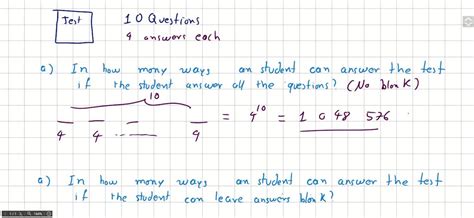 Test
10 Questions
4 answers each
a) In how many ways an student can answer the test
if the student answer all the questions? (No blank)
10
4 4 4 = 4^10 = 1 048 576
a) In how many ways an student can answer the test
if the student can leave answers blank?